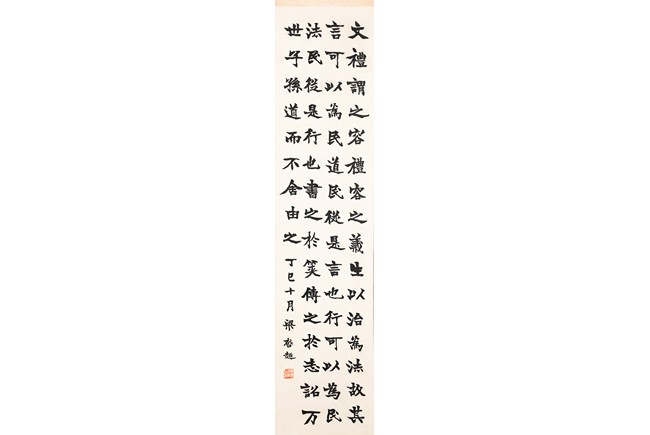 文禮謂之容禮容之義生以治為法故其
言可以為民道民從是言也行可以為民
法民從是行也書之於筴傳之於志詔万
世子孫道而不舍由之丁巳十月梁啟超